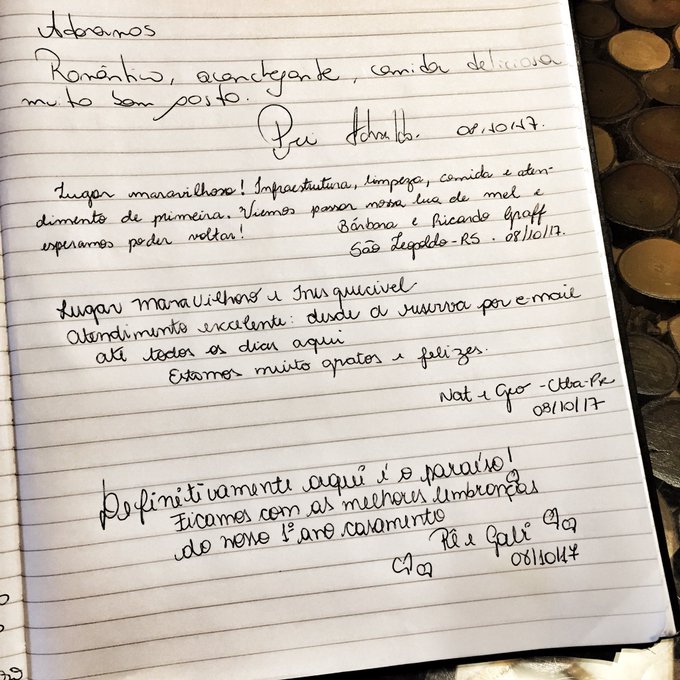 Adoramos
Romântico, aconchegante, comida deliciosa
muito bom gosto.
08/10/17.
Lugar maravilhoso! Infraestrutura, limpeza, comida e aten-
dimento de primeira. Viemos passar nossa lua de mel e
esperamos poder voltar!
Bárbara e Ricardo Graff
São Leopoldo-RS. 08/10/17.
Lugar Maravilhoso e Inesquecível
Atendimento excelente: desde a reserva por e-mail
até todos os dias aqui
Estamos muito gratos e felizes.
Nat e Geo - Ctba-Pr
08/10/17
Definitivamente aqui é o paraíso!
Ficamos com as melhores lembranças
do nosso 1º ano casamento
Rê e Gabi
08/10/17